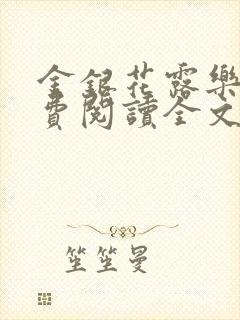 金銀花露樂
費閱讀全文
笙笙曼